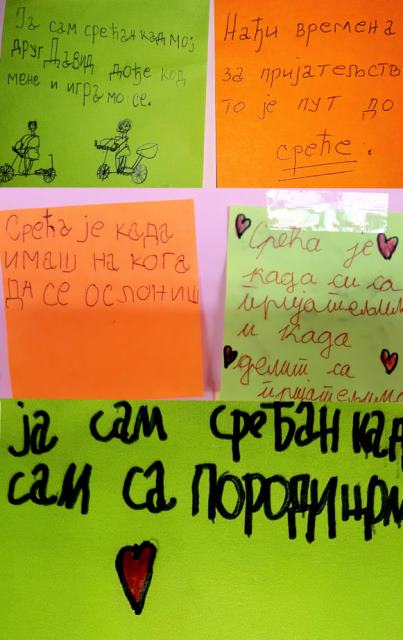 Ја сам срећан кад мој
друг Давид дође код
мене и играмо се.
Нађи времена
за пријатељств
то је пут до
среће.
Срећа је када
имаш на кога
да се ослониш
Срећа је
када си са
пријатељим
и када
делиш са
пријатељима
ја сам срећан кад
сам са породицом